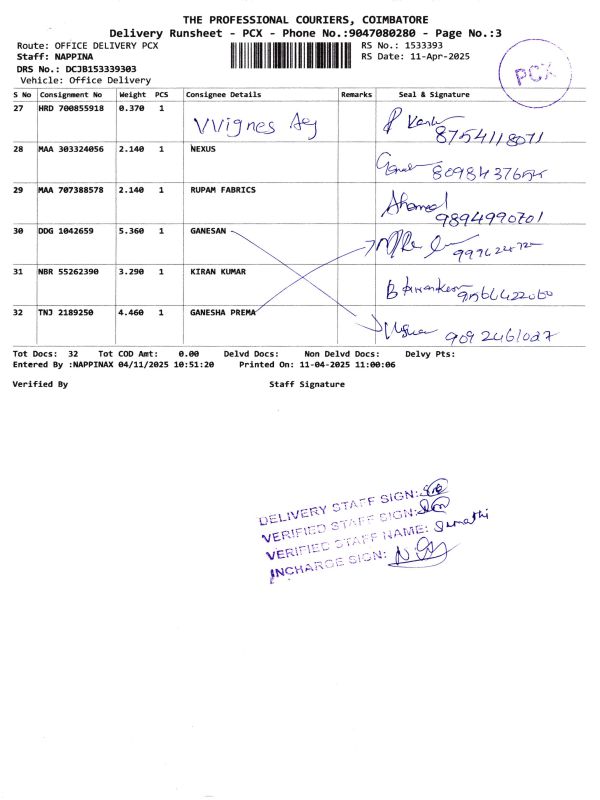 THE PROFESSIONAL COURIERS, COIMBATORE
Delivery Runsheet - PCX - Phone No.:9047080280 - Page No.:3
Route: OFFICE DELIVERY PCX
RS No.: 1533393
Staff: NAPPINA
RS Date: 11-Apr-2025
DRS No.: DCJB153339303
Vehicle: Office Delivery
PCX
S No Consignment No Weight PCS Consignee Details Remarks Seal & Signature
27 HRD 700855918 0.370 1 VVignes
8754118071
28 MAA 303324056 2.140 1 NEXUS
29 MAA 707388578 2.140 1 RUPAM FABRICS Ahamed
9894990701
30 DDG 1042659 5.360 1 GANESAN
31 NBR 55262390 3.290 1 KIRAN KUMAR
32 TNJ 2189250 4.460 1 GANESHA PREMA
9092461027
Tot Docs: 32 Tot COD Amt: 0.00 Delvd Docs: Non Delvd Docs: Delvy Pts:
Entered By :NAPPINAX 04/11/2025 10:51:20 Printed On: 11-04-2025 11:00:06
Verified By Staff Signature
DELIVERY STAFF SIGN:
VERIFIED STAFF SIGN:
VERIFIED STAFF NAME: Sumathi
INCHARGE SIGN: